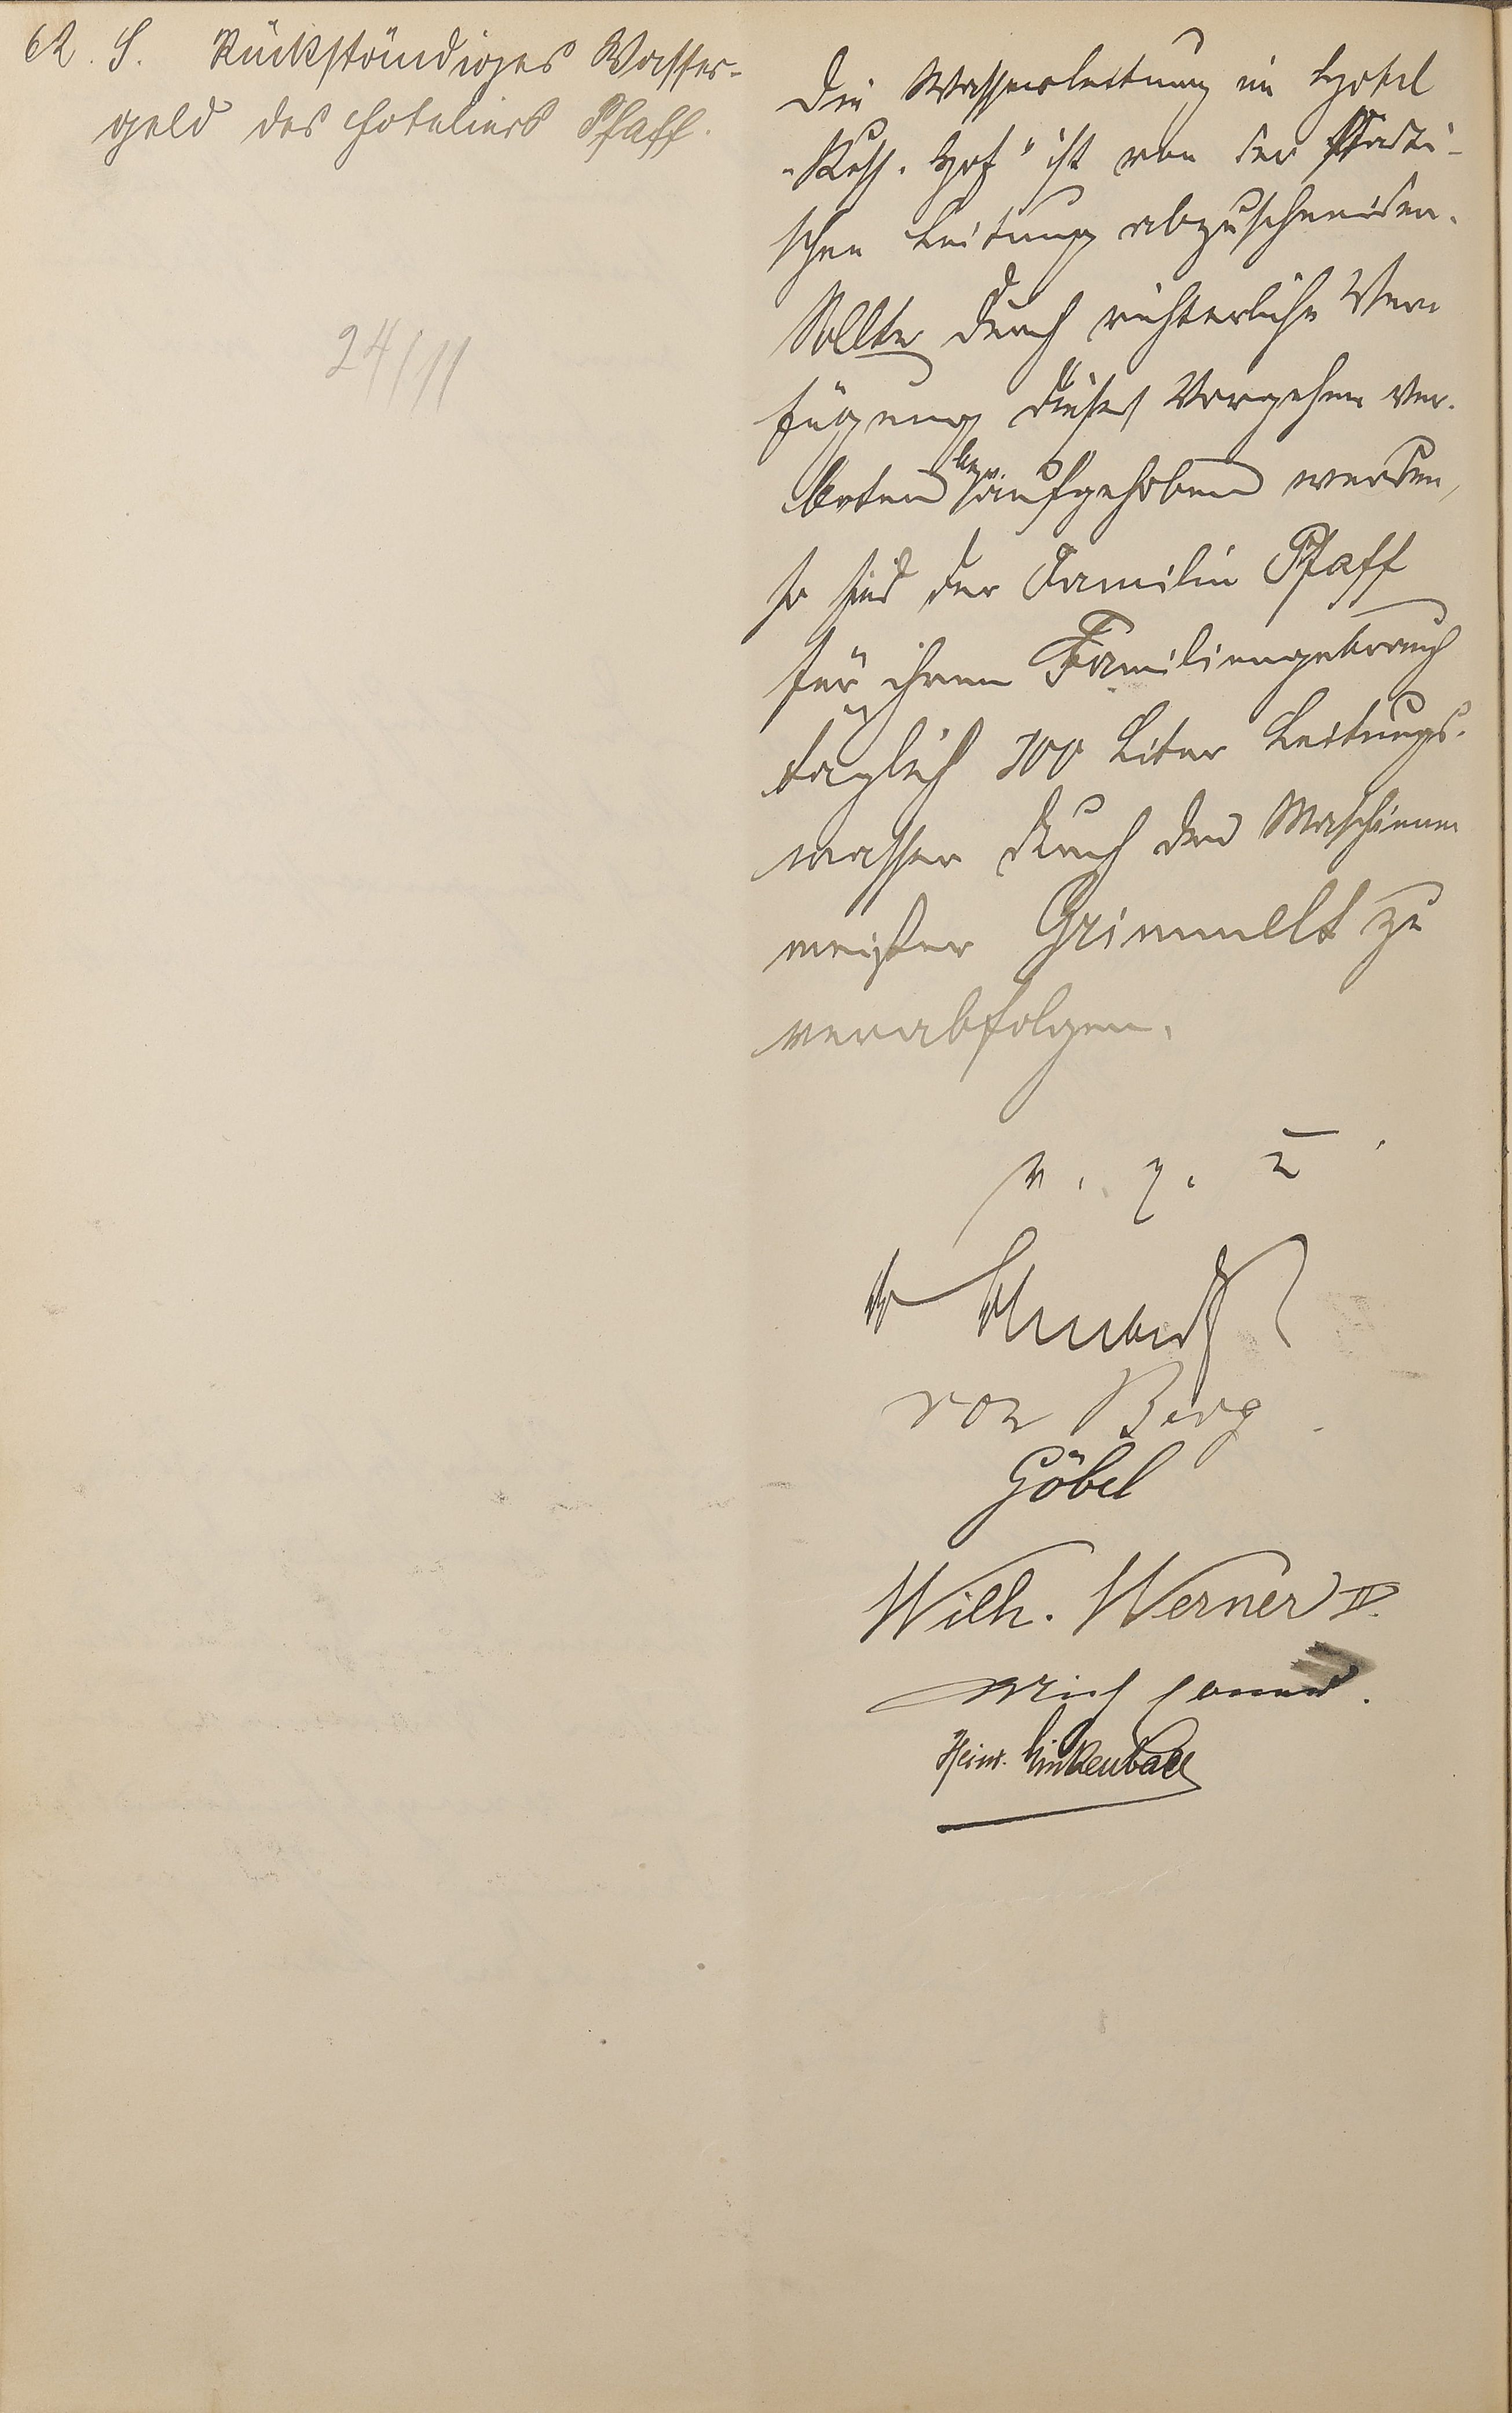 62. S. Rückständiges Wasser-
geld des Hoteliers Pfaff.
24/11
Die Wasserleitung im Hotel
"Russ. Hof" ist von der städti-
schen Leitung abzuschneiden.
Sollte durch richterliche Ver-
fügung dieses Vorgehen ver-
boten bezw. aufgehoben werden,
so sind der Familie Pfaff
für ihren Familiengebrauch
täglich 300 Liter Leitungs-
wasser durch den Maschinen
meister Grimmelt zu
verabfolgen.
v. g. u.
von Berg
Göbel
Wilh. Werner II.
Heinr. Linkenbach